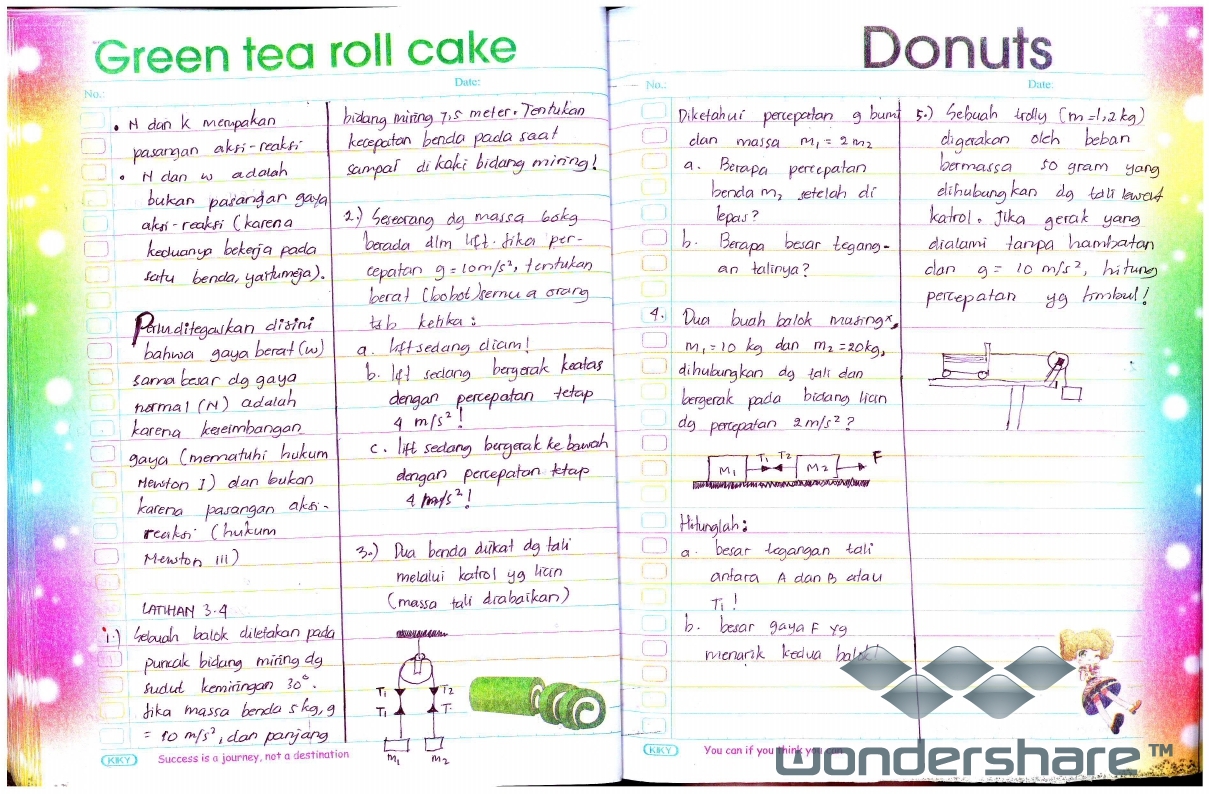 Green tea roll cake
No.:
Date:
• N dan K merupakan
pasangan aksi-reaksi
• N dan w adalah
bukan pasangan gaya
aksi-reaksi (karena
keduanya bekerja pada
satu benda, yaitumeja).
Perlu ditegaskan disini
bahwa gaya berat (w)
sama besar dg gaya
normal (N) adalah
karena keseimbangan
gaya (mematuhi hukum
Newston I) dan bukan
karena pasangan aksi-
reaksi (hukum
Newston III)
LATIHAN 3.4
1.) Sebuah balok diletakan pada
puncak bidang miring dg
sudut kemiringan 30°.
Jika massa benda 5 kg, g
= 10 m/s², dan panjang
bidang miring 7,5 meter. Tentukan
kecepatan benda pada saat
sampai di kaki bidang miring!
2.) Seseorang dg massa 60kg
berada dlm lift. Jika per-
cepatan g = 10 m/s², tentukan
berat (bobot) semu a orang
tsb ketika :
a. lift sedang diam!
b. lift sedang bergerak keatas
dengan percepatan tetap
4 m/s²!
c. lift sedang bergerak ke bawah
dengan percepatan tetap
4 m/s²!
3.) Dua benda diikat dg tali
melalui katrol yg licin
(massa tali diabaikan)
T1 T2
T1 T
m1 m2
KIKY
Success is a journey, not a destination
Donuts
No.:
Date:
Diketahui percepatan g bumi
dan massa m1 = 2m2
a. Berapa percepatan
benda m2 setelah di
lepas?
b. Berapa besar tegang-
an talinya?
4. Dua buah balok masing",
m1 = 10 kg dan m2 = 20kg,
dihubungkan dg tali dan
bergerak pada bidang licin
dg percepatan 2 m/s²?
M1 T1 T2 M2 F
Hitunglah :
a. besar tegangan tali
antara A dan B atau
T1 !
b. besar gaya F yg
menarik kedua balok!
5.) Sebuah trolly (m=1,2 kg)
digerakan oleh beban
bermassa 50 gram yang
dihubungkan dg tali lewat
katrol. Jika gerak yang
dialami tanpa hambatan
dan g = 10 m/s², hitung
percepatan yg timbul!
KIKY
You can if you think you can
wondershare™